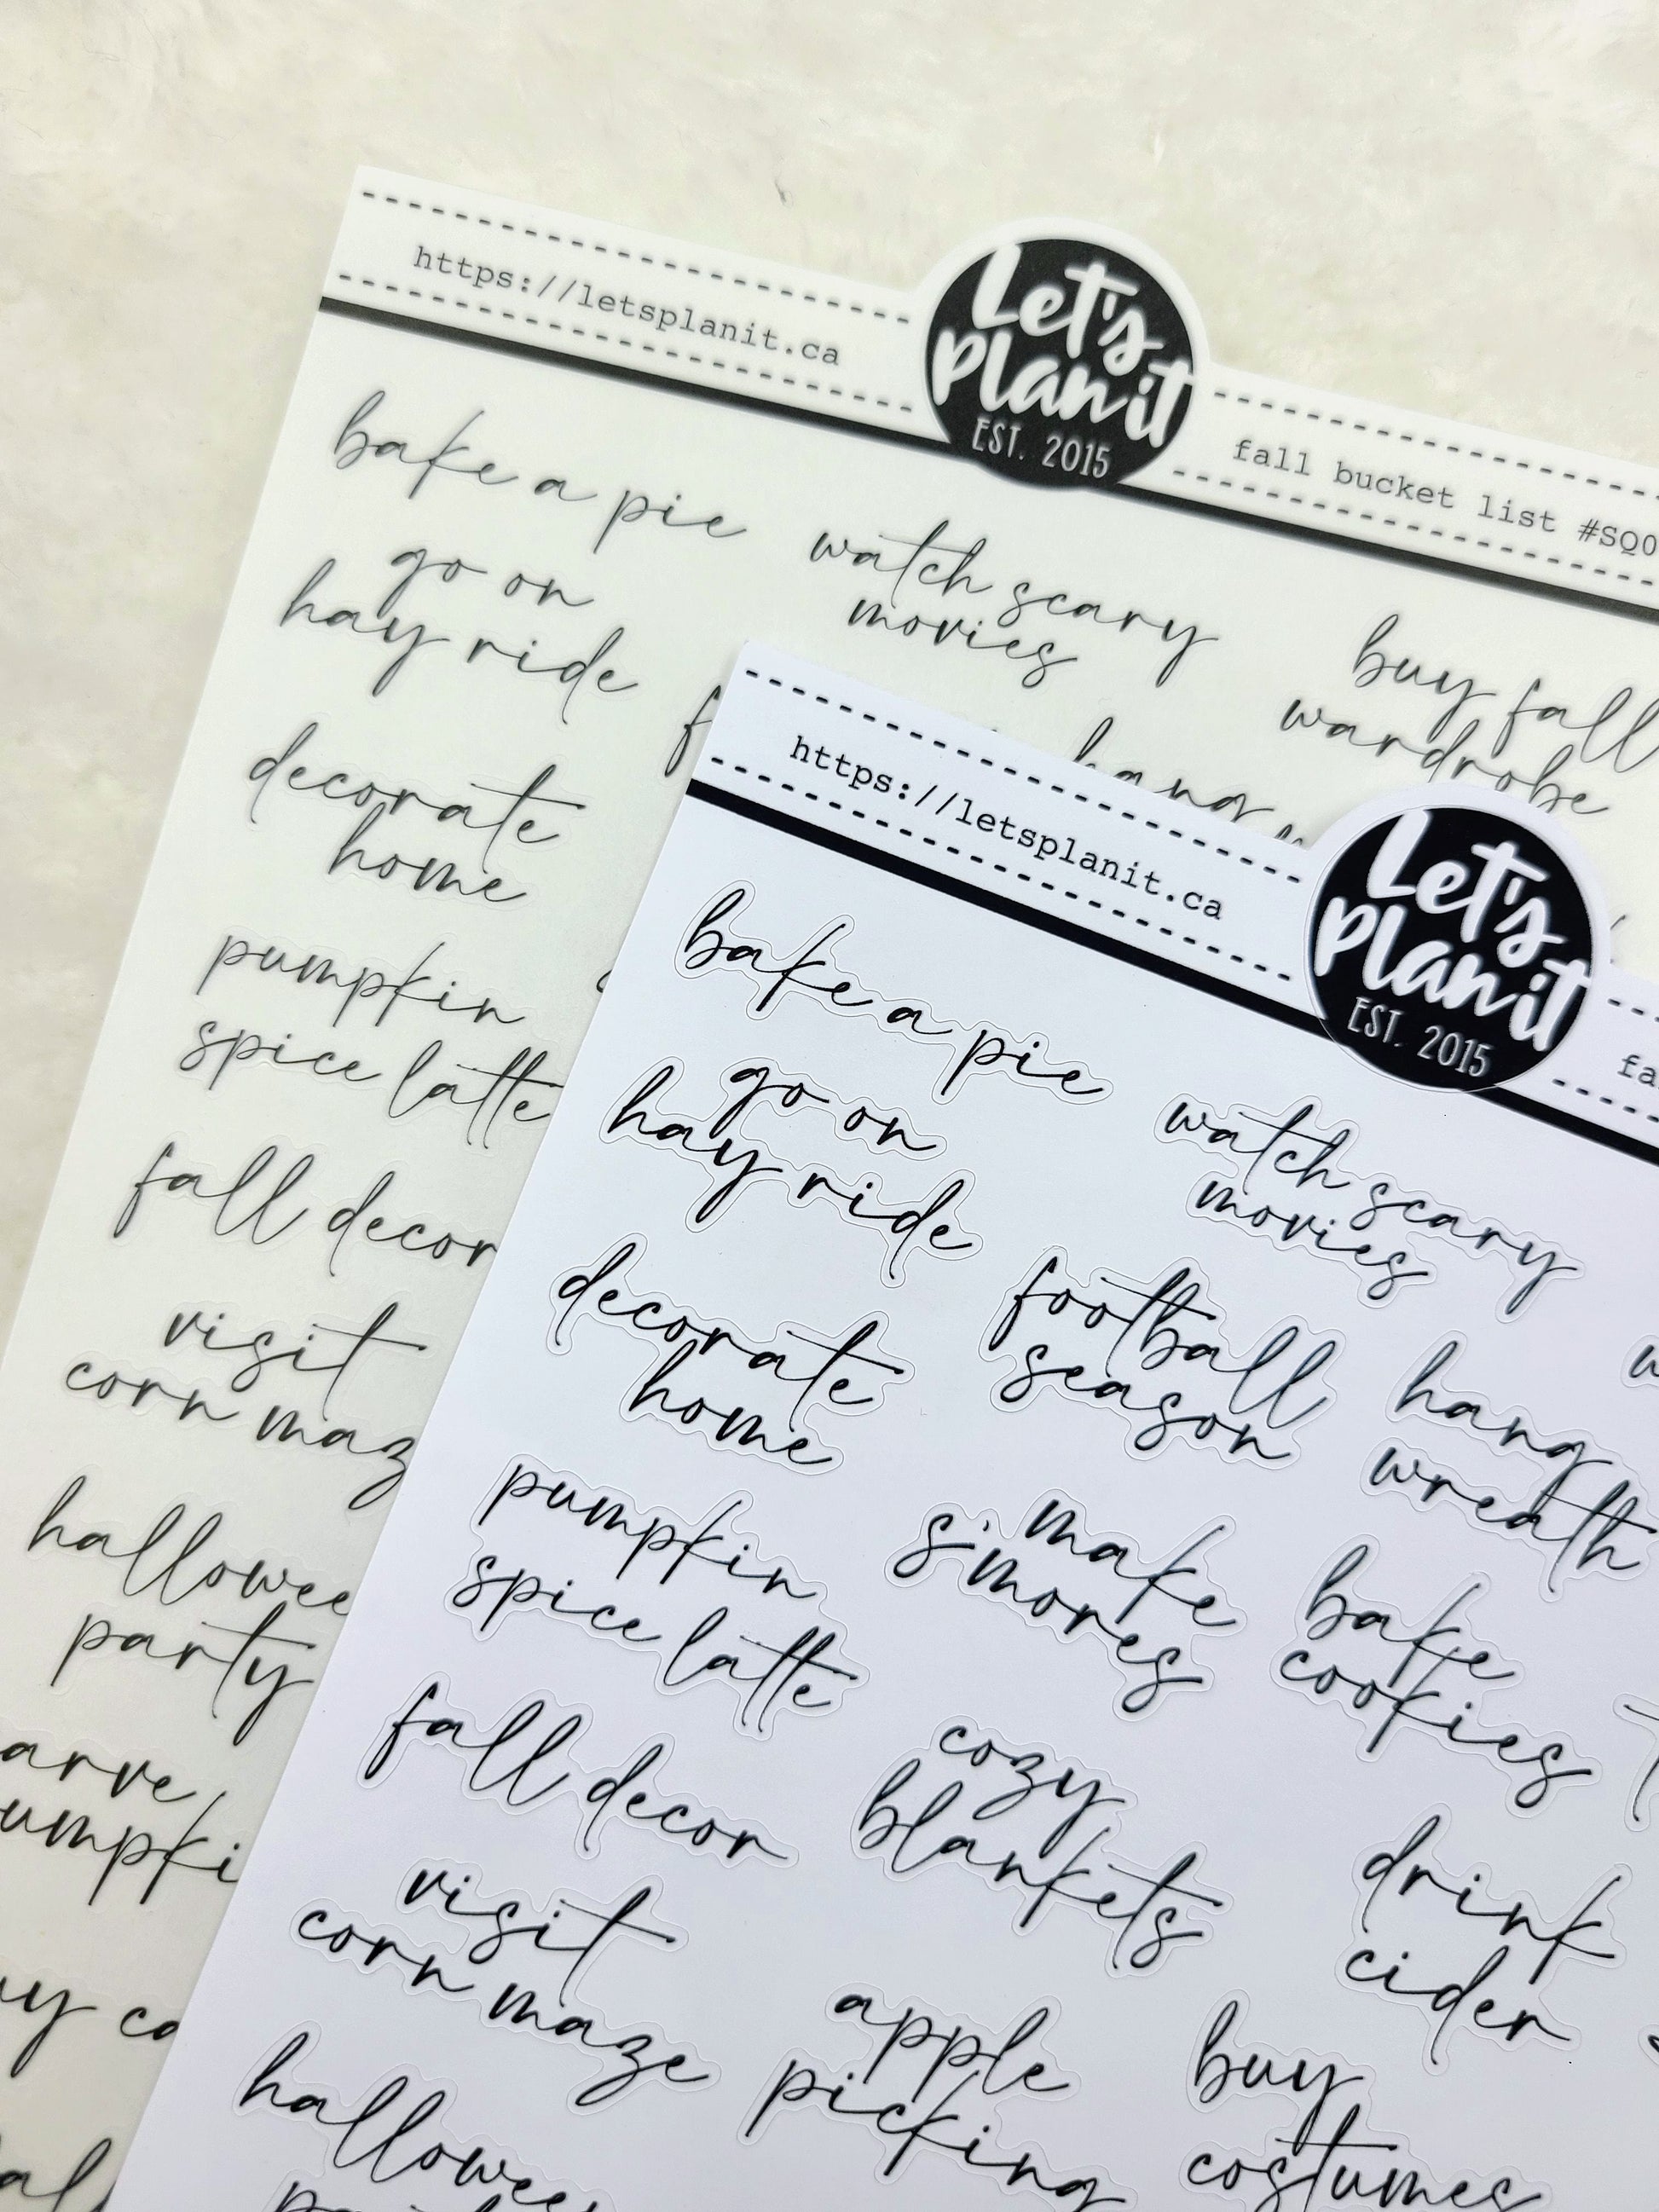 https://letsplanit.ca
Let's
Plan it
EST. 2015
fall bucket list #SQ0
bake a pie
watch scary
movies
buy fall
wardrobe
go on
hay ride
hang
decorate
home
pumpkin
spice latte
fall decor
visit
corn maz
hallowee
party
arve
umpki
y co
https://letsplanit.ca
Let's
Plan it
EST. 2015
fa
bake a pie
watch scary
movies
go on
hay ride
football
season
hang
wreath
decorate
home
make
s'mores
bake
cookies
pumpkin
spice latte
cozy
blankets
drink
cider
fall decor
visit
corn maze
apple
picking
buy
costumes
hallowee